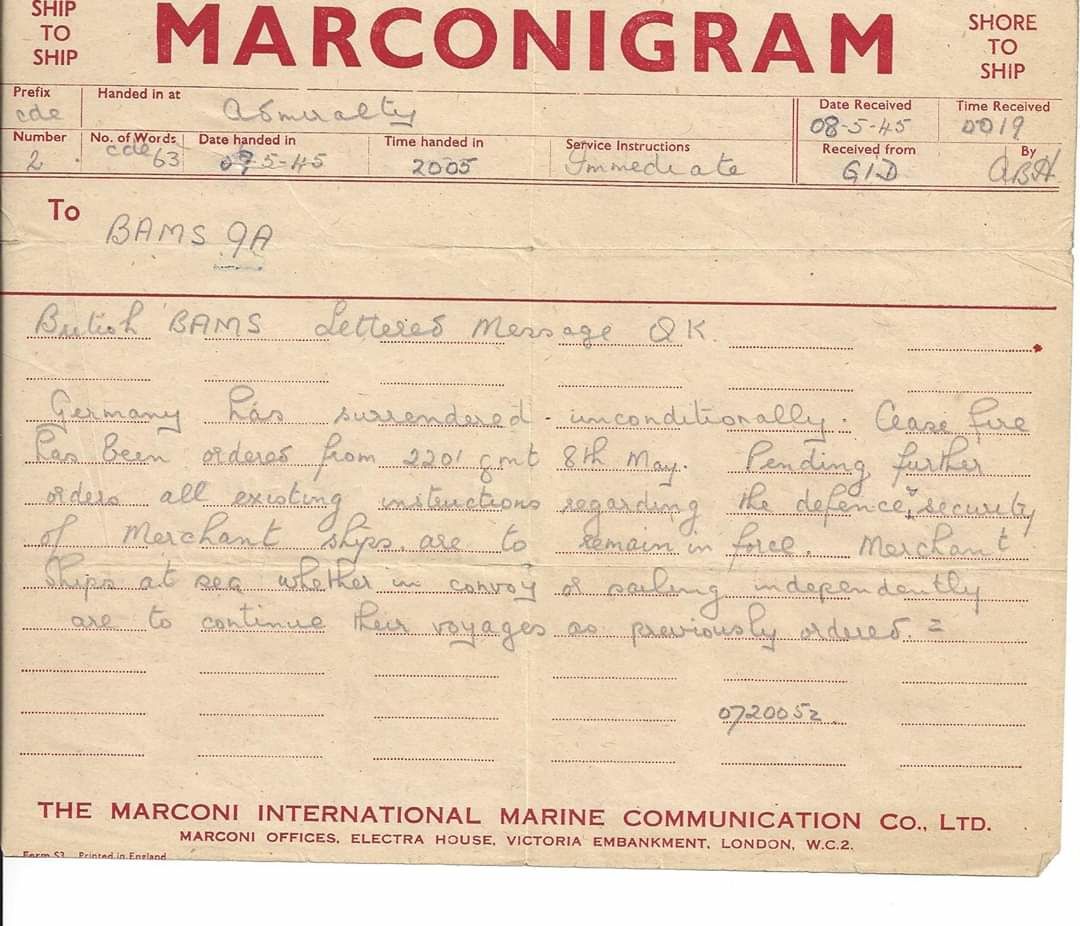 SHIP TO SHIP
MARCONIGRAM
SHORE TO SHIP
Prefix cde
Handed in at Admiralty
Date Received 08-5-45
Time Received 0019
Number 2
No. of Words cde 63
Date handed in 07-5-45
Time handed in 2005
Service Instructions Immediate
Received from GLD
By ABH
To BAMS 9A
British BAMS Lettered Message QK.
Germany has surrendered - unconditionally. Cease fire
has been ordered from 2201 gmt 8th May. Pending further
orders all existing instructions regarding the defence & security
of Merchant ships are to remain in force. Merchant
Ships at sea whether in convoy or sailing independently
are to continue their voyages as previously ordered. =
072005z
THE MARCONI INTERNATIONAL MARINE COMMUNICATION CO., LTD.
MARCONI OFFICES, ELECTRA HOUSE, VICTORIA EMBANKMENT, LONDON, W.C.2.
Form S3. Printed in England